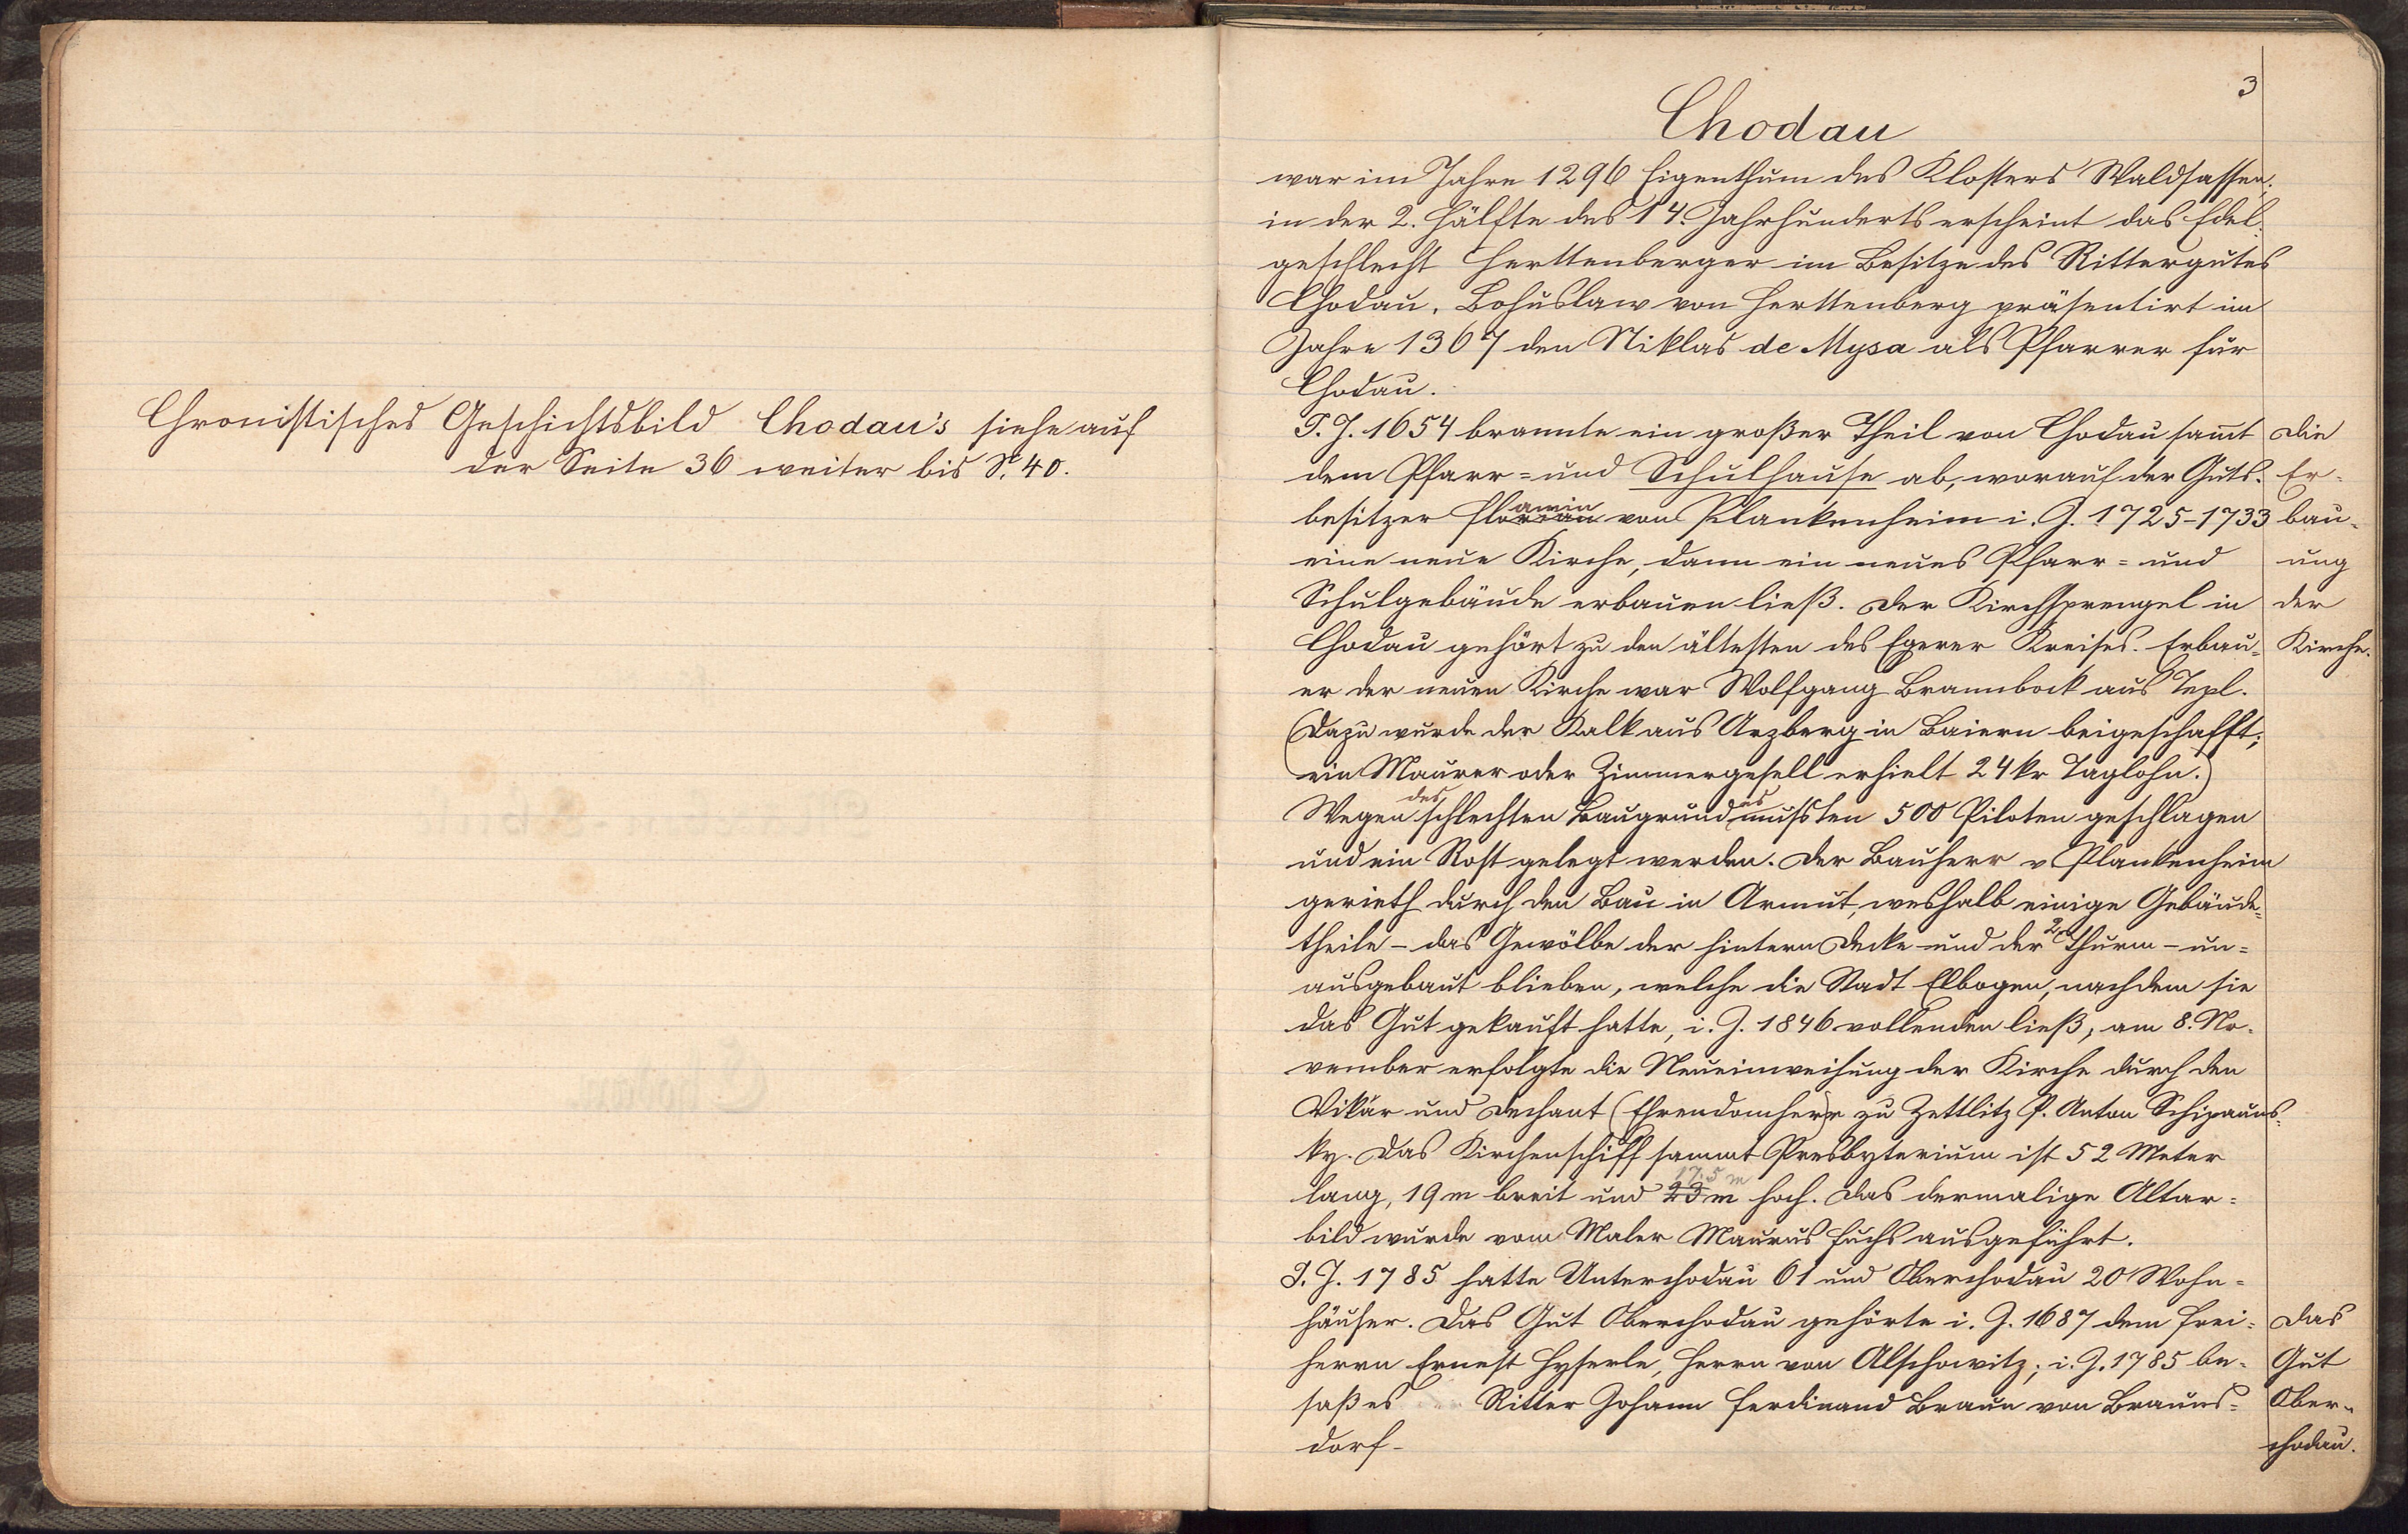 Chronistisches Geschichtsbild Chodau's siehe auf
der Seite 36 weiter bis S. 40.
3
Chodau
war im Jahre 1296 Eigenthum des Klosters Waldsassen;
in der 2. Hälfte des 14. Jahrhunderts erscheint das Edel-
geschlecht Herttenberger im Besitze des Rittergutes
Chodau. Bohuslaw von Herttenberg präsentirt im
Jahre 1367 den Niklas de Mysa als Pfarrer für
Chodau.
I. J. 1654 brannte ein großer Theil von Chodau samt
dem Pfarr- und Schulhause ab, worauf der Guts-
besitzer Florian amin von Plankenheim i. J. 1725-1733
eine neue Kirche, dann ein neues Pfarr- und
Schulgebäude erbauen ließ. Der Kirchsprengel in
Chodau gehört zu den ältesten des Egerer Kreises. Erbau-
er der neuen Kirche war Wolfgang Braunbock aus Tepl.
(Dazu wurde der Kalk aus Arzberg in Baiern beigeschafft;
ein Maurer oder Zimmergesell erhielt 24 kr Taglohn.)
Wegen des schlechten Baugrundes mußten 500 Piloten geschlagen
und ein Rost gelegt werden. Der Bauherr v. Plankenheim
gerieth durch den Bau in Armut, weshalb einige Gebäude-
theile - das Gewölbe der hintern Decke und der 2. Thurm - un-
ausgebaut blieben, welche die Stadt Elbogen, nachdem sie
das Gut gekauft hatte, i. J. 1846 vollenden ließ; am 8. No-
vember erfolgte die Neueinweihung der Kirche durch den
Vikär und Dechant (Ehrendomherr) zu Zettlitz P. Anton Schipans-
ky. Das Kirchenschiff sammt Presbyterium ist 52 Meter
lang, 19 m breit und 23 m 17.5 m hoch. Das dermalige Altar-
bild wurde vom Maler Maurus Fuchs ausgeführt.
I. J. 1785 hatte Unterchodau 61 und Oberchodau 20 Wohn-
häuser. Das Gut Oberchodau gehörte i. J. 1687 dem Frei-
herrn Ernest Hyserle, Herrn von Alschowitz; i. J. 1785 be-
saß es Ritter Johann Ferdinand Braun von Brauns-
dorf-
Die
Er-
bau-
ung
der
Kirche.
Das
Gut
Ober-
chodau.